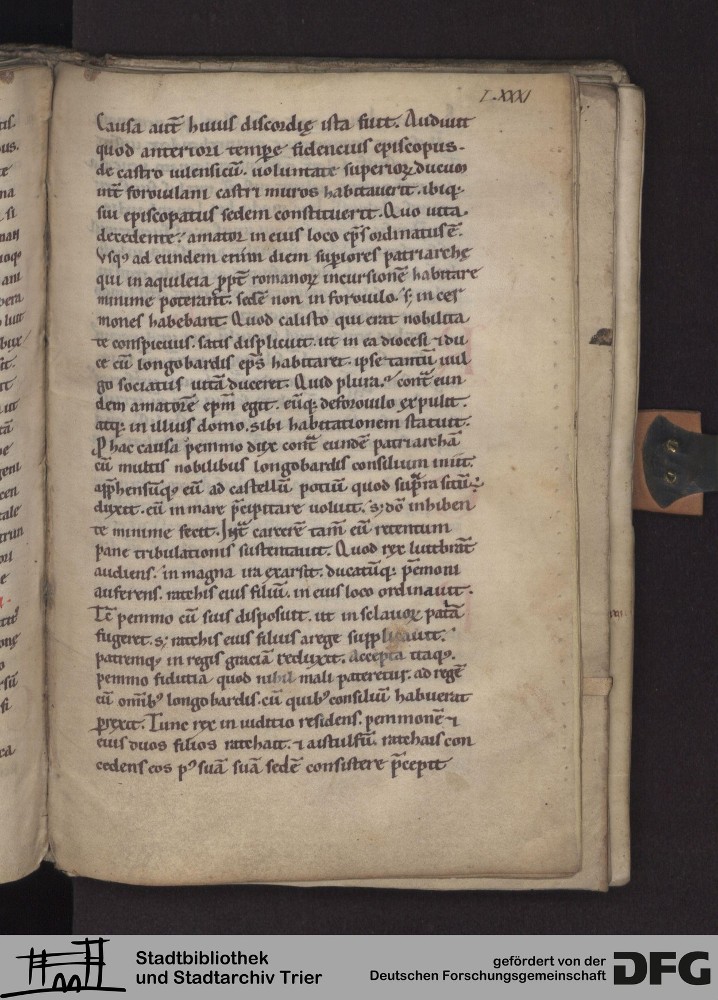 LXXXI
Causa aut̄ huius discordię ista fuit. Aduutt
quod anteriori tempore fidencius episcopus
de castro iulensicū. uoluntate superioꝝ ducum
inīt foroiulani castri muros habitauerit. ibiq;
sui episcopatus sedem constituerit. Quo uita
decedente. amator in eius loco ep̄s ordinatus ē.
Vsq; ad eundem etiīm diem superiores patriarchę
qui in aquileia ꝓpt̄ romanoꝝ incursionē habitare
minime poterant. sedē non in foroiulo. sꝫ in cor
mones habebant. Quod calisto qui erat nobilita
te conspicuus. satis displicuit. ut in ea diocesi ⁊ du
ce cū longobardis ep̄s habitaret. ipse tantū uul
go sociatus uitā duceret. Quid plura. cont̄ eun
dem amatorē ep̄m egit. eūq; deforoiulo expulit.
atq; in illius domo. sibi habitationem statuit.
ꝓ hac causa pemmo dux cont̄ eundē patriarchā
cū multis nobilibus longobardis consilium iniit.
app̄hensūq; eū ad castellū potium quod supra sitū
duxit. eū in mare p̄cipitare uoluit. sꝫ dō inhiben
te minime fecit. Int̄ carcerē tam̄ eū retentum
pane tribulationis sustentauit. Quod rex luitbrāt
audiens. in magna ira exarsit. ducatūq; pemoni
auferens. ratchis eius filiū. in eius loco ordinauit.
Tc̄ pemmo cū suis disposuit. ut in sclauoꝝ patā
fugeret. sꝫ ratchis eius filius a rege supplicauit.
patremq; in regis gracia reduxit. Accepta itaq;
pemmo fidutia quod nihil mali pateretur. ad regē
cū omīb; longobardis. cū quib; consiliū habuerat
ꝑrexit. Tunc rex in iuditio residens. pemmonē ⁊
eius duos filios ratchait. ⁊ aistulfū. ratchais con
cedens eos p9 suā suā sedē consistere p̄cepit
Stadtbibliothek
und Stadtarchiv Trier
gefördert von der
Deutschen Forschungsgemeinschaft
DFG